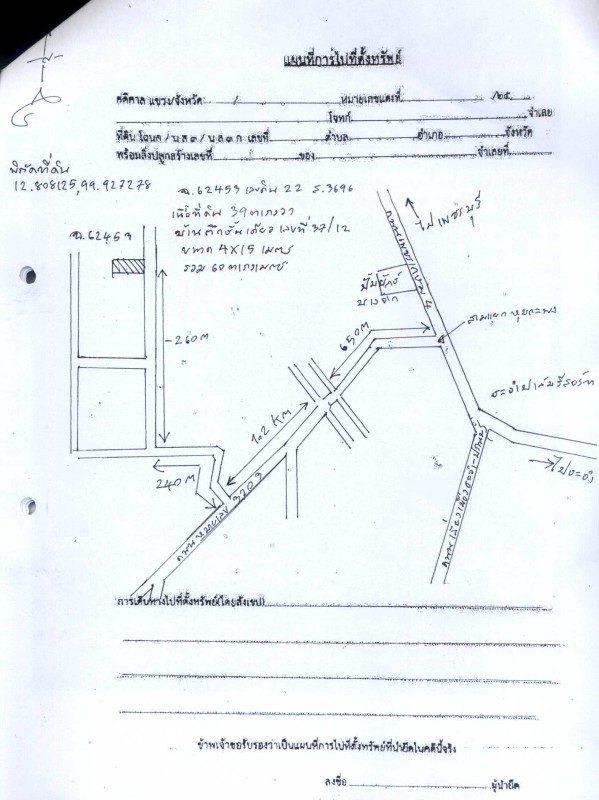 แผนที่การไปที่ตั้งทรัพย์
คดีศาล แขวง/จังหวัด / หมายเลขแดงที่ /๒๕
โจทก์ จำเลย
ที่ดิน โฉนด / น.ส.๓ / น.ส.๓ ก. เลขที่ ตำบล อำเภอ จังหวัด
พร้อมสิ่งปลูกสร้างเลขที่ ของ จำเลยที่
พิกัดที่ดิน
12.808125,99.927278
ฉ.62453 เลขดิน 22 ร.3696
เนื้อที่ดิน 39 ตารางวา
บ้านตึกชั้นเดียว เลขที่ 37/12
ขนาด 4X15 เมตร
รวม 60 ตารางเมตร
ฉ.62453
ไปเพชรบุรี
ถนนเพชรเกษม 4
ปั๊มน้ำมัน
บางจาก
650M
260M
1.2 KM
240M
ถนน หมายเลข 3203
ไปชะอำ
การเดินทางไปที่ตั้งทรัพย์(โดยสังเขป)
ข้าพเจ้าขอรับรองว่าเป็นแผนที่การไปที่ตั้งทรัพย์ที่นำยึดในคดีนี้จริง
ลงชื่อ ผู้นำยึด